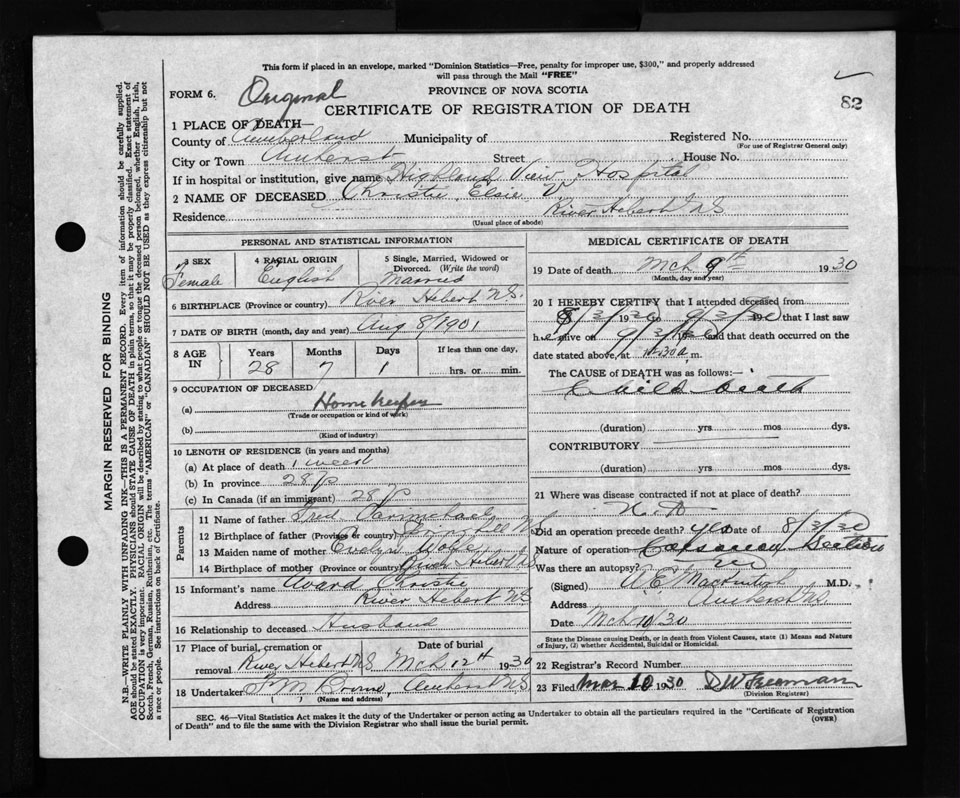 This form if placed in an envelope, marked "Dominion Statistics—Free, penalty for improper use, $300," and properly addressed
will pass through the Mail "FREE"
FORM 6. Original
PROVINCE OF NOVA SCOTIA
82
CERTIFICATE OF REGISTRATION OF DEATH
1 PLACE OF DEATH—
County of Cumberland Municipality of Registered No.
(For use of Registrar General only)
City or Town Amherst Street House No.
If in hospital or institution, give name Highland View Hospital
2 NAME OF DECEASED Christie, Elsie V
Residence River Hebert NS
(Usual place of abode)
MARGIN RESERVED FOR BINDING
N.B.—WRITE PLAINLY WITH UNFADING INK—THIS IS A PERMANENT RECORD. Every item of information should be carefully supplied.
AGE should be stated EXACTLY. PHYSICIANS should STATE CAUSE OF DEATH in plain terms, so that it may be properly classified. Exact statement of
OCCUPATION is very important. RACIAL ORIGIN will be described by stating to what people or tongue the deceased person belonged, whether English, Irish,
Scotch, French, German, Russian, Ruthenian, etc. The terms "AMERICAN" or "CANADIAN" SHOULD NOT BE USED as they express citizenship but not
a race or people. See instructions on back of Certificate.
PERSONAL AND STATISTICAL INFORMATION
3 SEX 4 RACIAL ORIGIN 5 Single, Married, Widowed or
Divorced. (Write the word)
Female English Married
6 BIRTHPLACE (Province or country) River Hebert N.S.
7 DATE OF BIRTH (month, day and year) Aug 8/1901
8 AGE IN Years Months Days If less than one day,
28 7 1 hrs. or min.
9 OCCUPATION OF DECEASED
(a) Home keeper
(Trade or occupation or kind of work)
(b)
(Kind of industry)
10 LENGTH OF RESIDENCE (in years and months)
(a) At place of death 1 week
(b) In province 28 yrs
(c) In Canada (if an immigrant) 28 y
Parents
11 Name of father Fred
12 Birthplace of father (Province or country) Springhill NS
13 Maiden name of mother Evelyn
14 Birthplace of mother (Province or country) River Hebert NS
15 Informant's name Award Christie
Address River Hebert NS
16 Relationship to deceased Husband
17 Place of burial, cremation or Date of burial
removal River Hebert NS Mch 12th 1930
18 Undertaker Amherst NS
(Name and address)
MEDICAL CERTIFICATE OF DEATH
19 Date of death Mch 9th 1930
(Month, day and year)
20 I HEREBY CERTIFY that I attended deceased from
8/3/1930 to 9/3/1930 that I last saw
h alive on 9/3/30 and that death occurred on the
date stated above, at m.
The CAUSE of DEATH was as follows:—
Child birth
(duration) yrs mos dys.
CONTRIBUTORY
(duration) yrs mos dys.
21 Where was disease contracted if not at place of death?
Did an operation precede death? yes Date of 8/3/30
Nature of operation Caesarean Section
Was there an autopsy? no
(Signed) MacIntosh M.D.
Address Amherst NS.
Date Mch 10/30
State the Disease causing Death, or in death from Violent Causes, state (1) Means and Nature
of Injury, (2) whether Accidental, Suicidal or Homicidal.
22 Registrar's Record Number
23 Filed Mar 10 1930 D W Freeman
(Division Registrar)
SEC. 46—Vital Statistics Act makes it the duty of the Undertaker or person acting as Undertaker to obtain all the particulars required in the "Certificate of Registration
of Death" and to file the same with the Division Registrar who shall issue the burial permit.
(OVER)